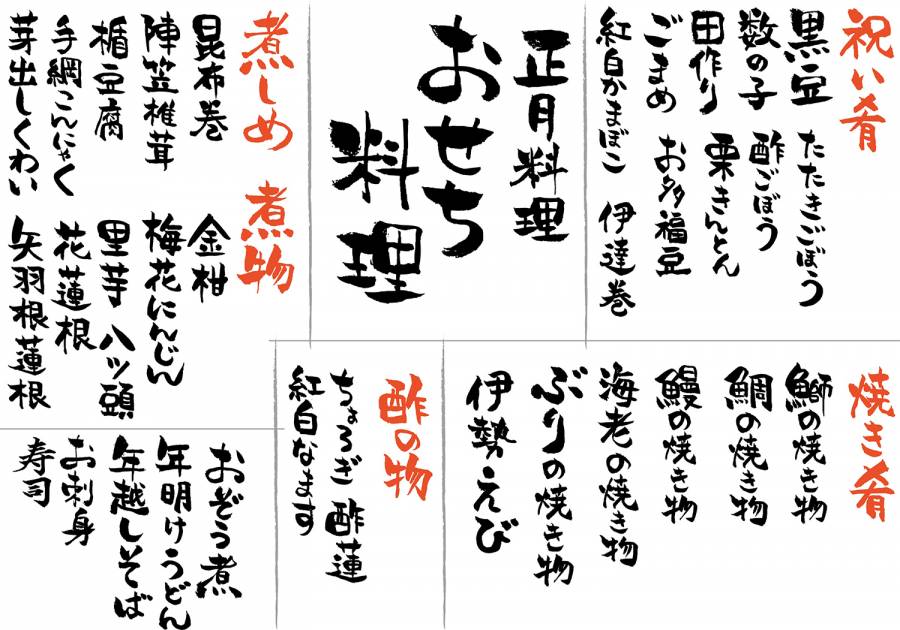 祝い肴
黒豆 たたきごぼう
数の子 酢ごぼう
田作り 栗きんとん
ごまめ お多福豆
紅白かまぼこ 伊達巻
正月料理
おせち
料理
煮しめ 煮物
昆布巻 金柑
陣笠椎茸 梅花にんじん
楯豆腐 里芋 八ッ頭
手綱こんにゃく 花蓮根
芽出しくわい 矢羽根蓮根
焼き肴
鰤の焼き物
鯛の焼き物
鰻の焼き物
海老の焼き物
ぶりの焼き物
伊勢えび
酢の物
ちょろぎ 酢蓮
紅白なます
おぞう煮
年明けうどん
年越しそば
お刺身
寿司